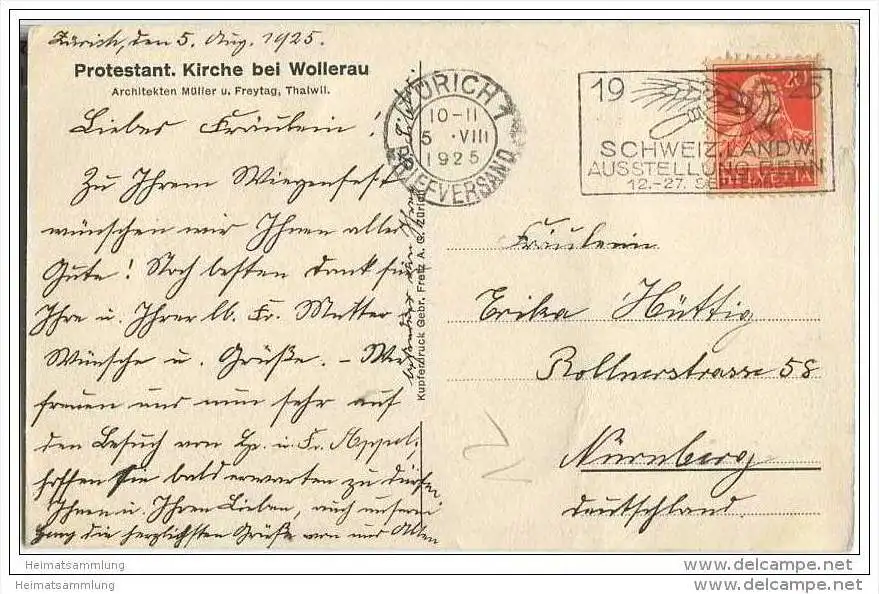 Zürich, den 5. Aug. 1925.
Protestant. Kirche bei Wollerau
Architekten Müller u. Freytag, Thalwil.
Liebes Fräulein!
Zu Ihrem Wiegenfest
wünschen wir Ihnen alles
Gute! Noch besten Dank für
Ihre u. Ihrer lb. Fr. Mutter
Wünsche u. Grüße. – Wir
freuen uns nun sehr auf
den Besuch von Hr. u. Fr. Appel,
hoffen sie bald erwarten zu dürfen
Ihnen u. Ihren Lieben, auch unserm
Hans die herzlichsten Grüße von uns Allen
besonders von Ihrer
Kupferdruck Gebr. Fretz A. G. Zürich
ZÜRICH 1
10-11
5. VIII
1925
BRIEFVERSAND
19 25
SCHWEIZ. LANDW.
AUSSTELLUNG BERN
12.-27. SE
20
HELVETIA
Fräulein
Erika Hüttig
Rollnerstrasse 58
Nürnberg
Deutschland.
Heimatsammlung
Heimatsammlung
www.delcampe.net
www.delcampe.net